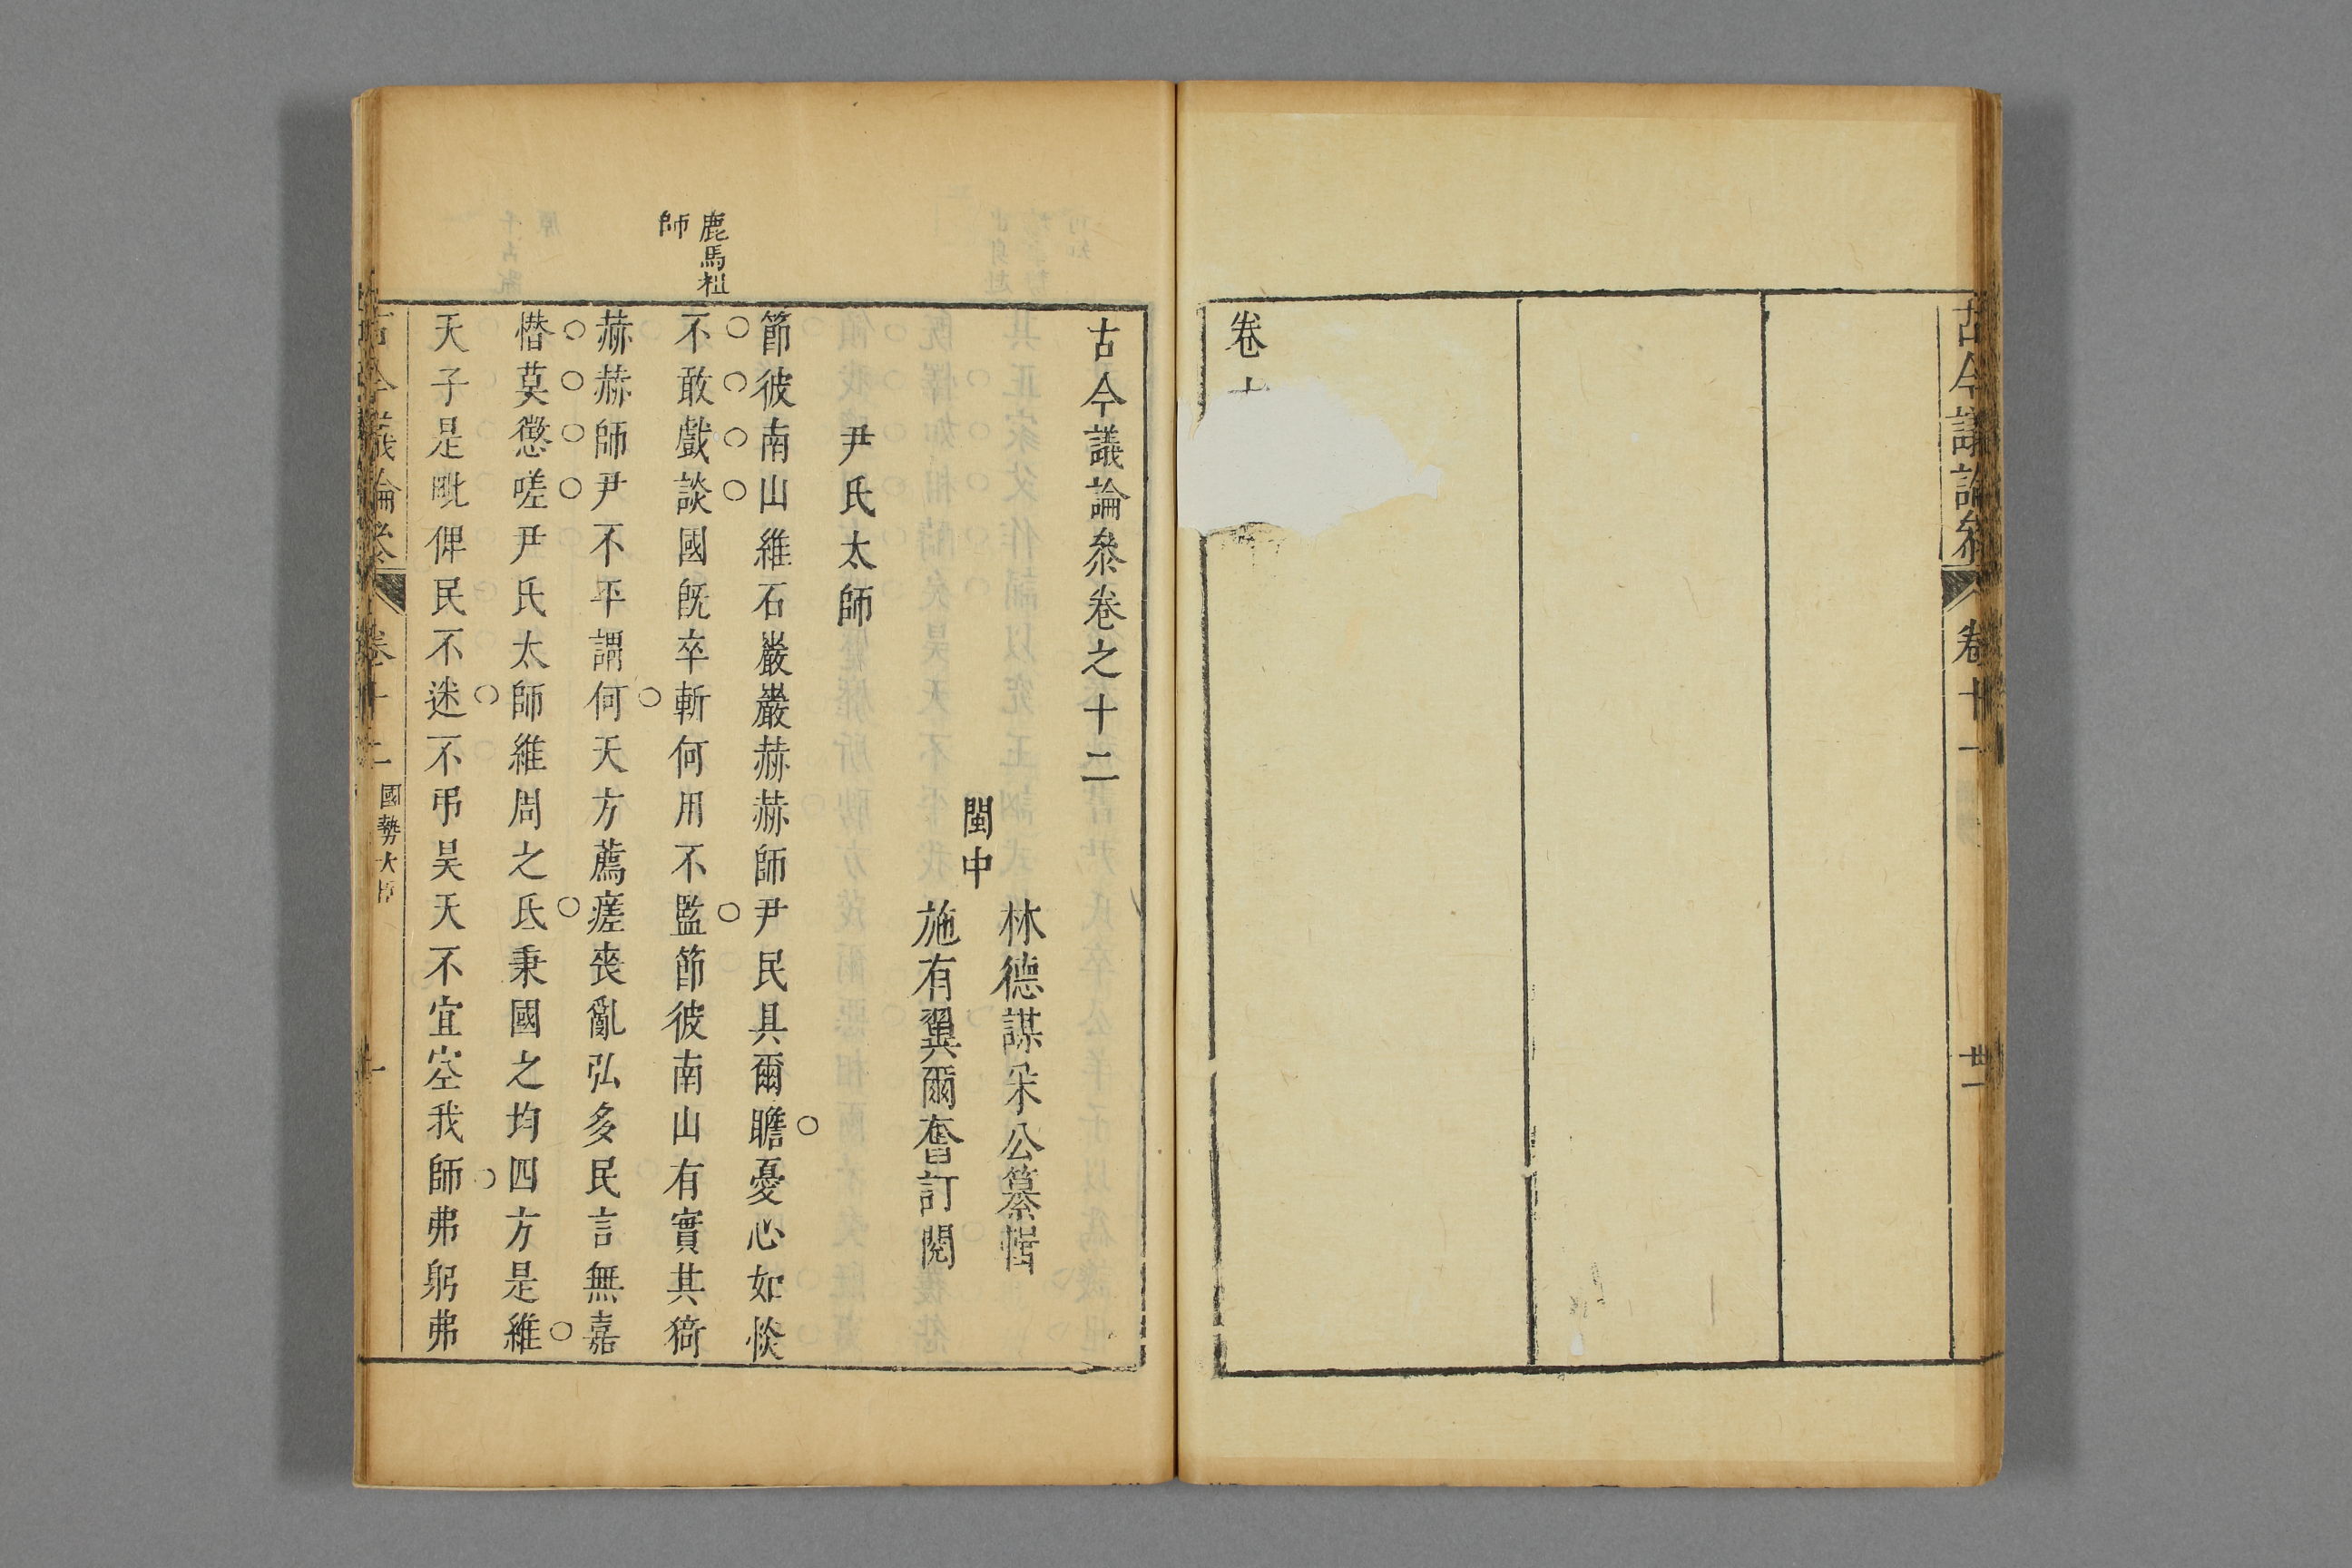 古今議論參
卷十一
卅一
卷十
古今議論叅卷之十二
閩中
林德謀采公纂輯
施有翼爾奮訂閱
尹氏太師
節彼南山維石巖巖赫赫師尹民具爾瞻憂心如惔
不敢戲談國旣卒斬何用不監節彼南山有實其猗
赫赫師尹不平謂何天方薦瘥喪亂弘多民言無嘉
憯莫懲嗟尹氏太師維周之氐秉國之均四方是維
天子是毗俾民不迷不弔昊天不宜空我師弗躬弗
鹿馬祖
師
古今議論叅
卷十二
國勢大臣
一